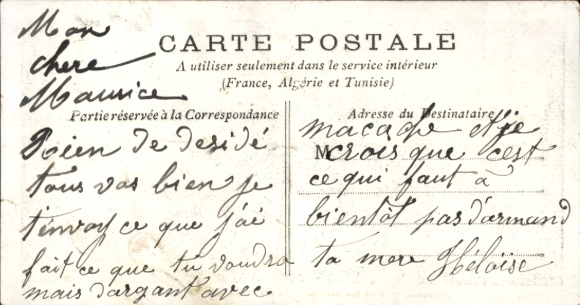 Mon
chere
Maurice
CARTE POSTALE
A utiliser seulement dans le service intérieur
(France, Algérie et Tunisie)
Partie réservée à la Correspondance
Rien de desidé
tous vas bien je
t'envoy ce que j'ai
fait ce que tu voudra
mais d'argant avec
Adresse du Destinataire
M
crois que c'est
ce qui faut à
bientôt pas d'armand
ta mere Héloïse